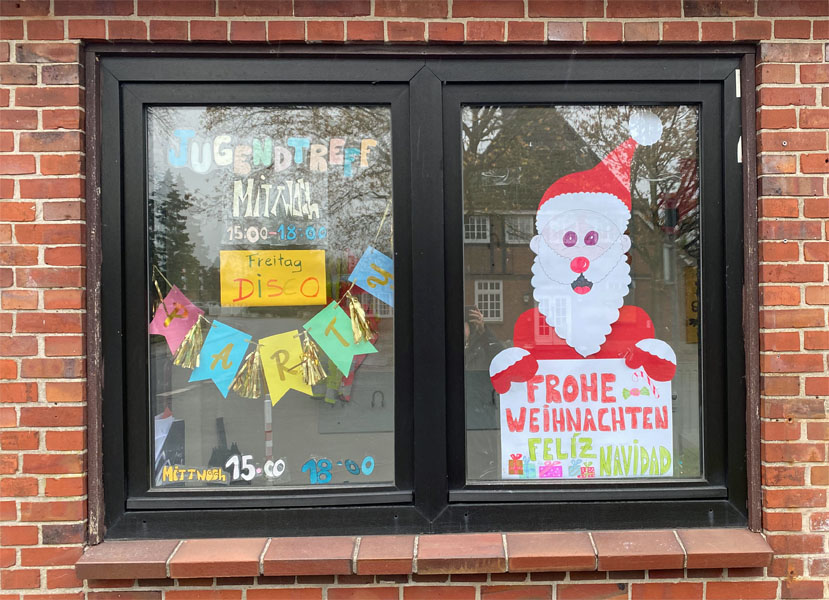 JUGENDTREFF
MITWOCH
15:00-18:00
Freitag
DiSCO
PARTY
MITTWOCH 15:00 18:00
FROHE
WEIHNACHTEN
FELÍZ
NAVIDAD